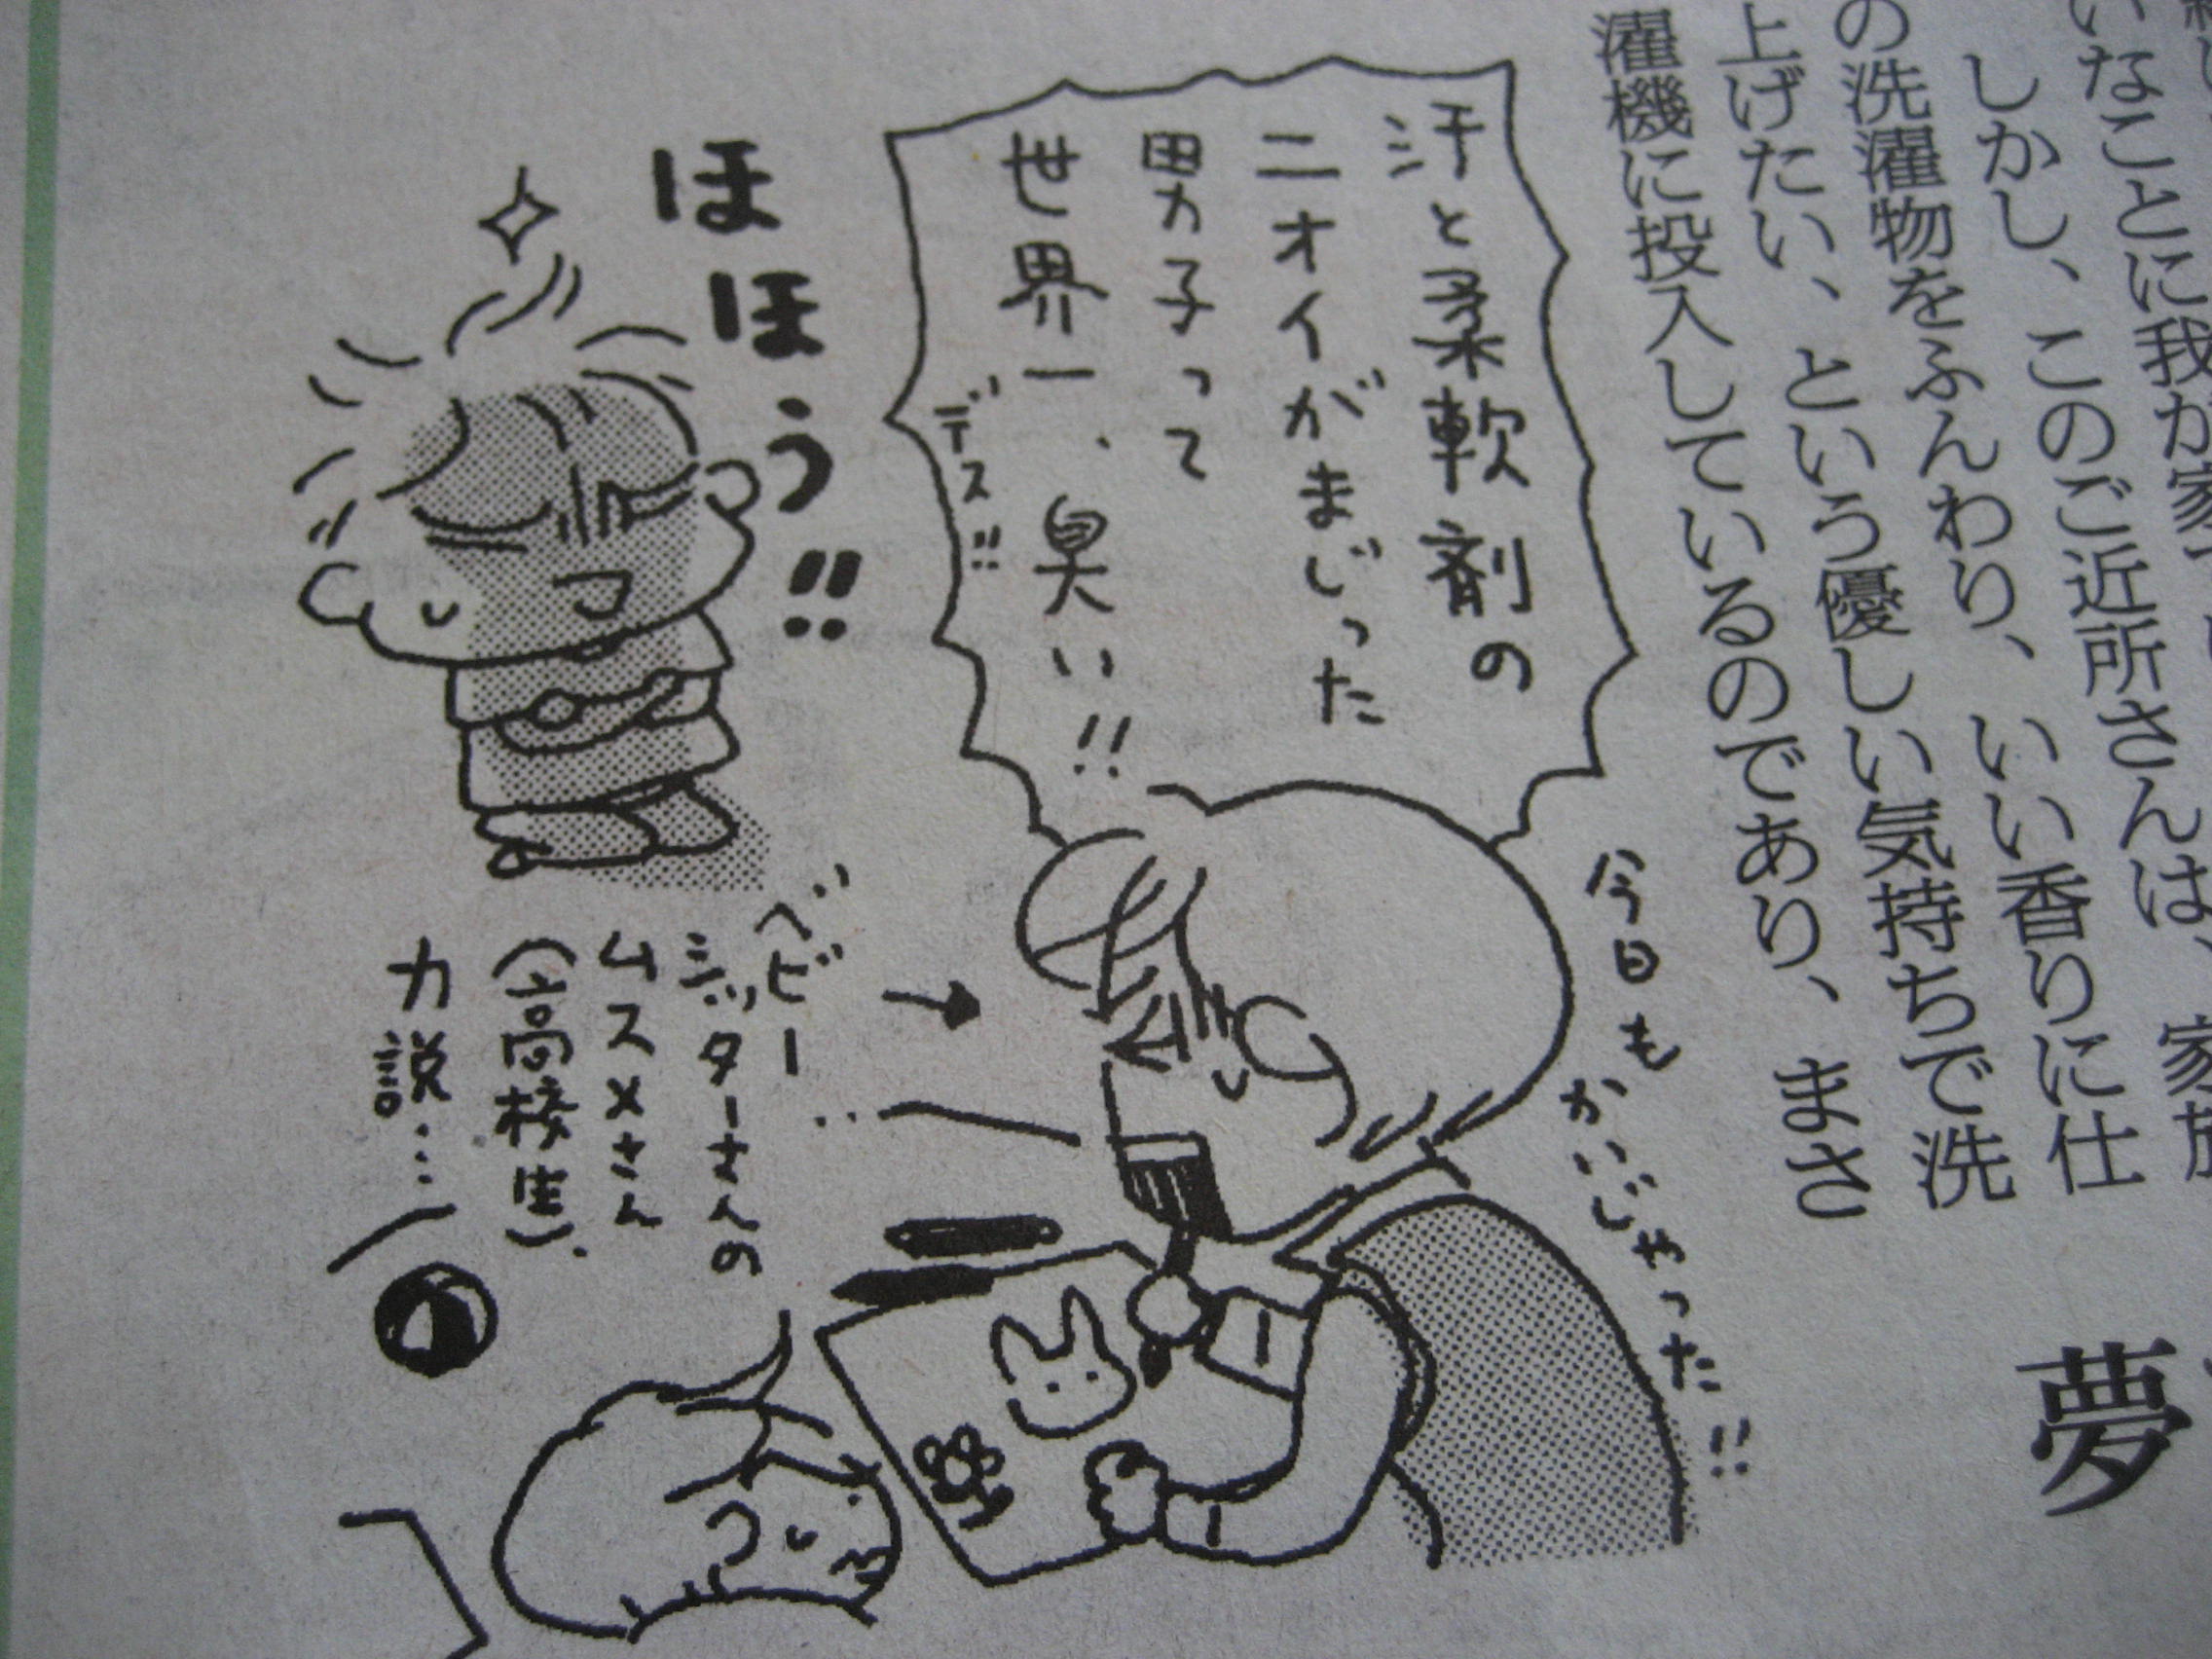 いなことに我が家
しかし、このご近所さんは、家族
の洗濯物をふんわり、いい香りに仕
上げたい、という優しい気持ちで洗
濯機に投入しているのであり、まさ
夢
汗と柔軟剤の
ニオイがまじった
男子って
世界一、臭い!!
デス!!
今日も
かいじゃった!!
ほほう!!
ベビー
シッターさんの
ムスメさん
(高校生)、
力説…